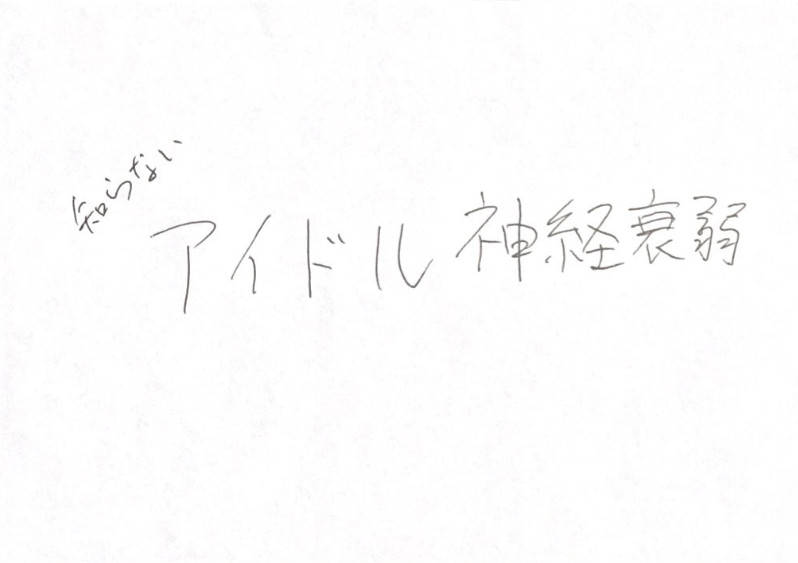 知らない
アイドル神経衰弱